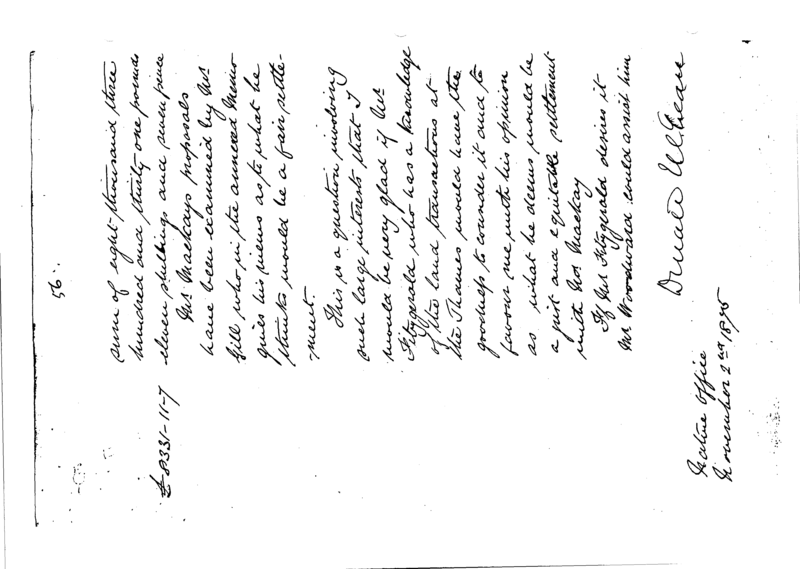 56.
sum of eight thousand three
hundred and thirty one pounds
eleven shillings and seven pence
£8331-11-7
Mr Mackays proposals
have been examined by Mr
Gill who in the annexed Memo
gives his views as to what he
thinks would be a fair settle-
-ment.
This is a question involving
such large interests that I
would be very glad if Mr
Fitzgerald who has a knowledge
of the land transactions at
the Thames would have the
goodness to consider it and to
favour me with his opinion
as to what he deems would be
a just and equitable settlement
with Mr Mackay
If Mr Fitzgerald desires it
Mr Woodward could assist him
Donald McLean
Native Office
November 2nd 1875